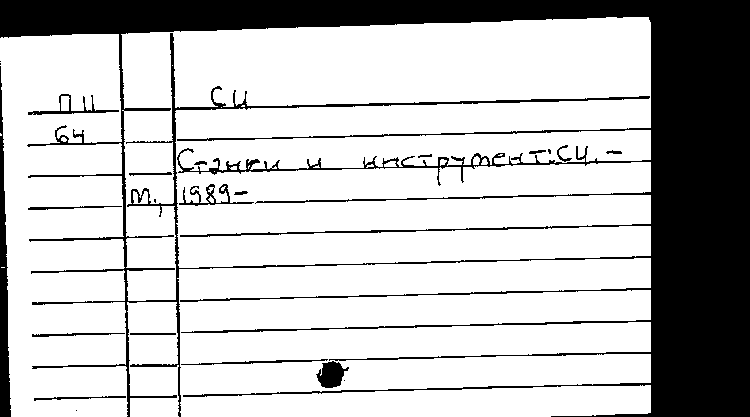 П 11 СИ
64
Станки и инструмент:СИ.–
М., 1989–